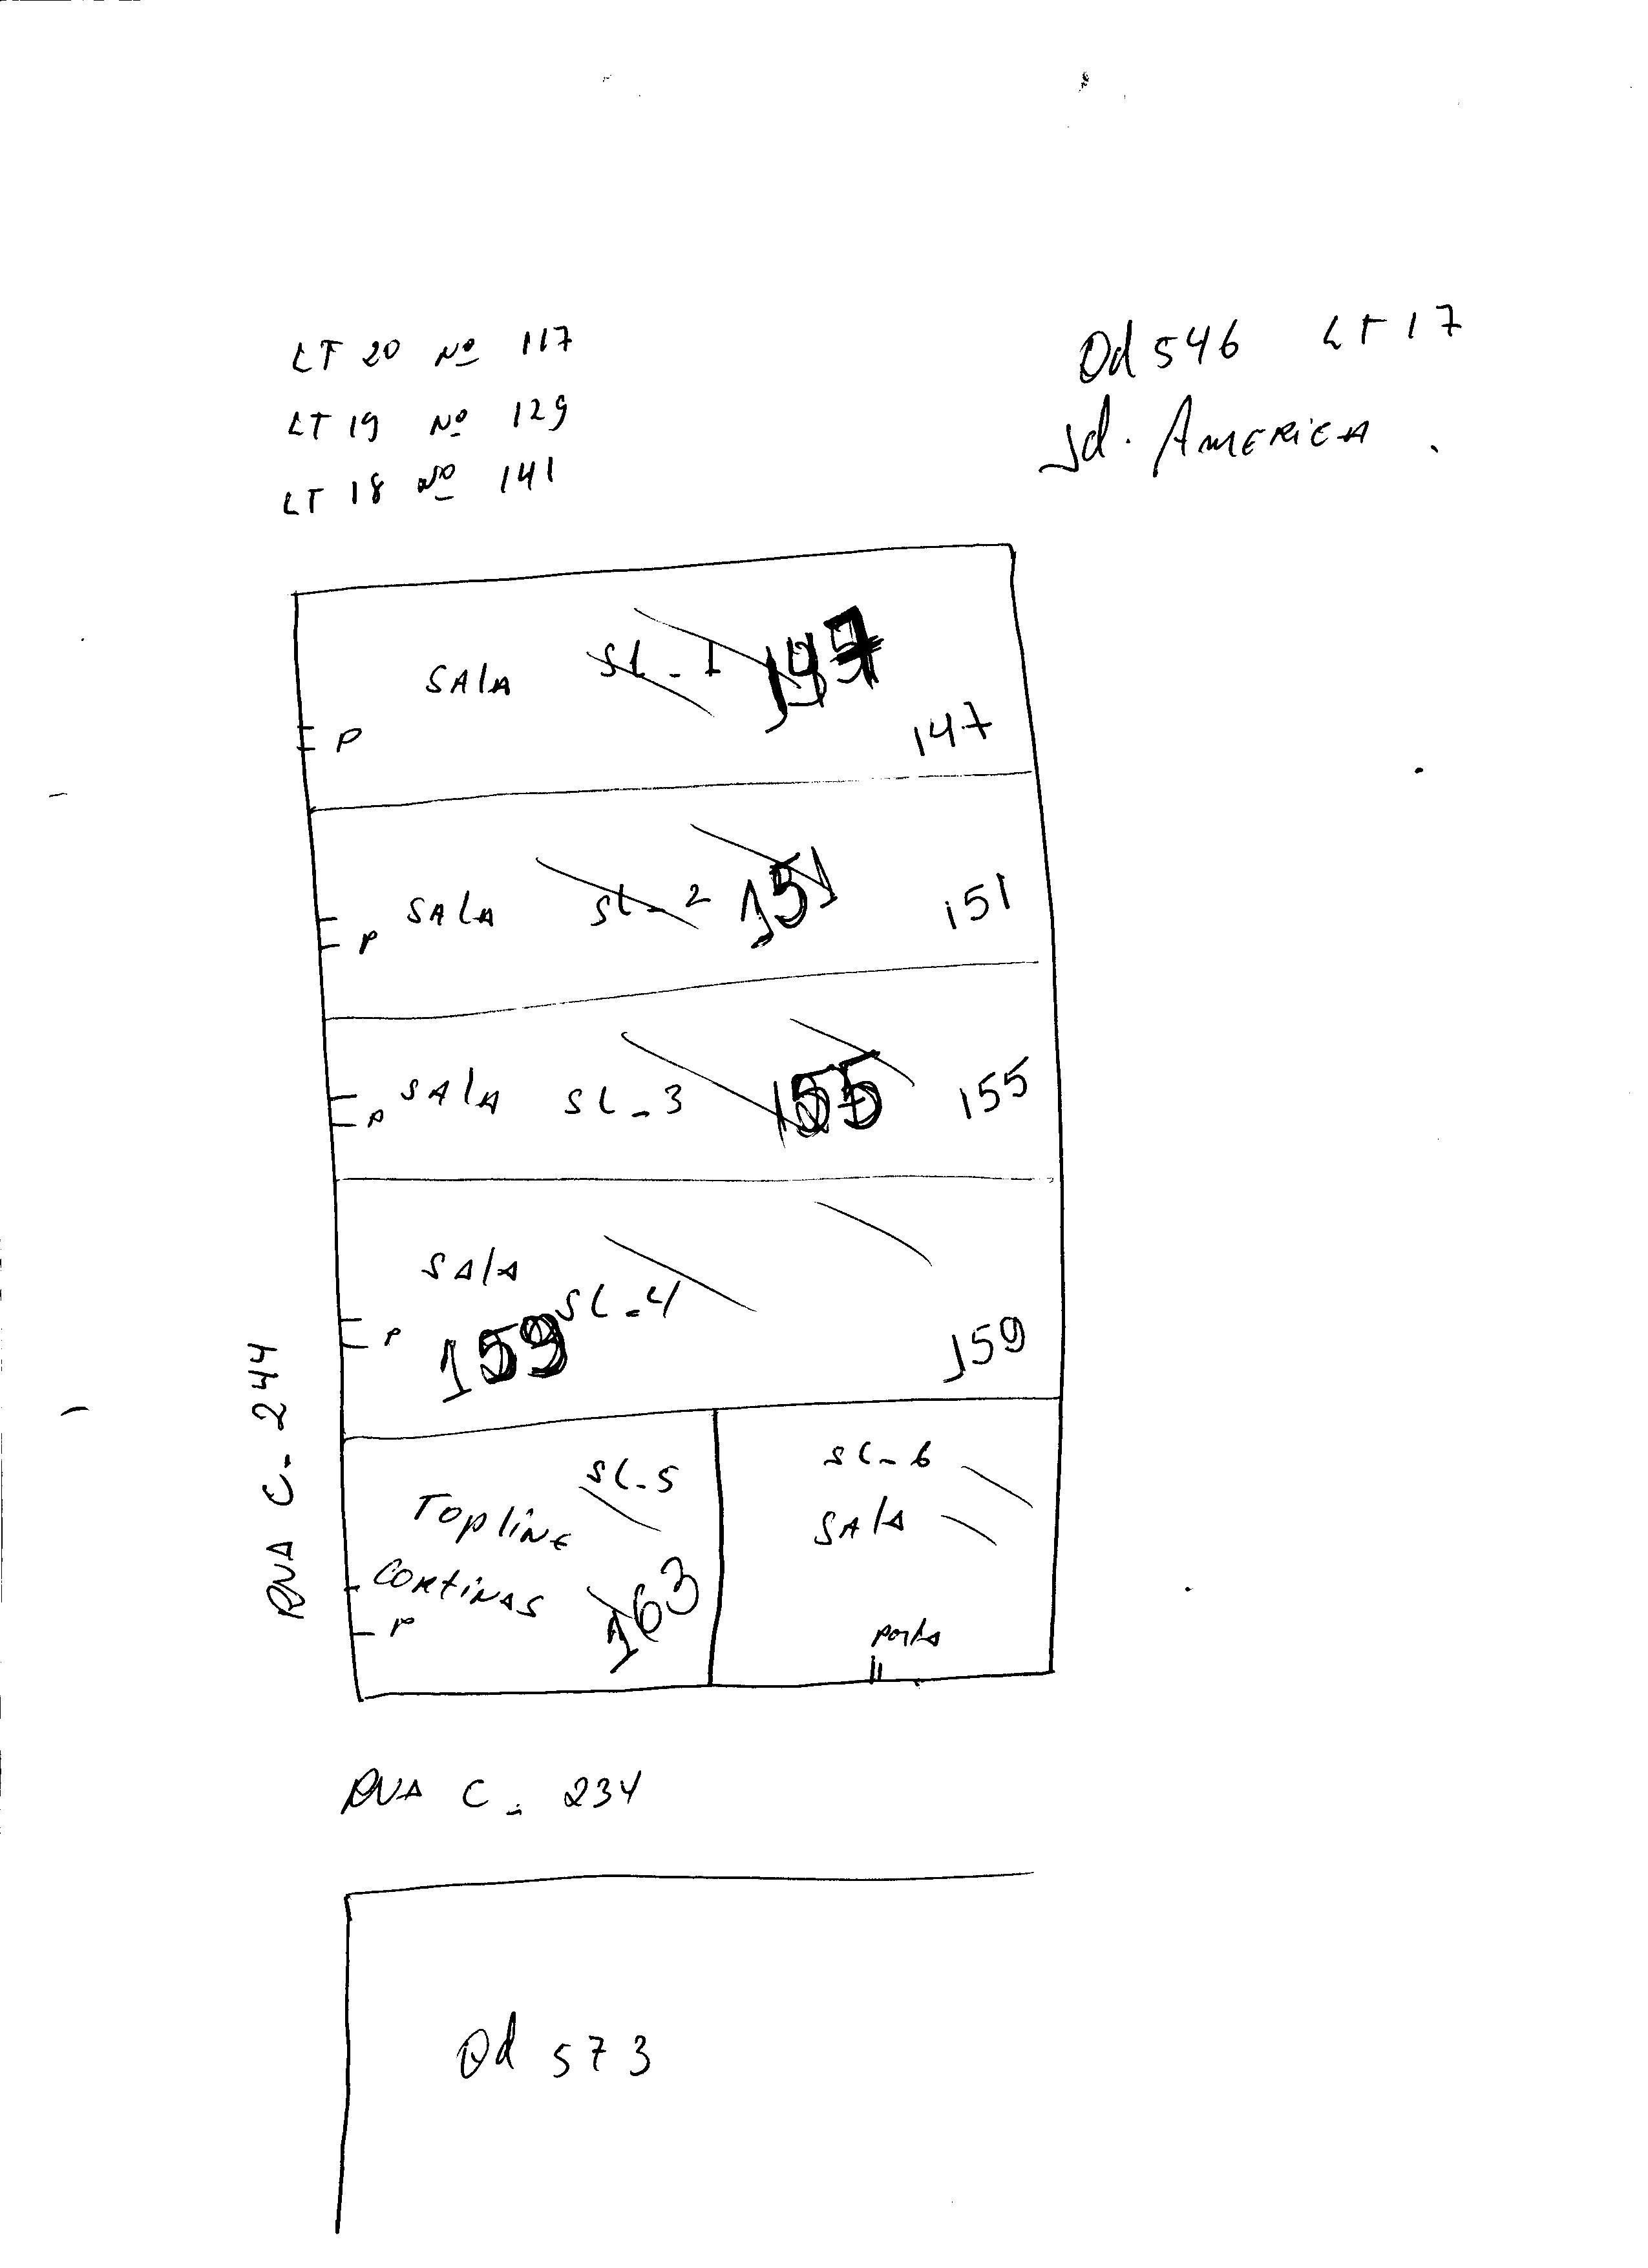 LT 20 Nº 117
LT 19 Nº 129
LT 18 Nº 141
Qd 546 LT 17
Jd. AMERICA.
SALA SL - 1 147
P 147
SALA SL - 2 151 151
P
SALA SL - 3 155 155
P
SALA
SL - 4
P 159 159
RUA C - 244
SL - 5
TOPLINE
CORTINAS 163
P
SL - 6
SALA
porta
RUA C - 234
Qd 573